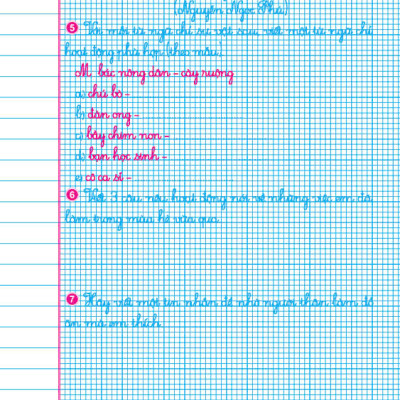 (Nguyễn Ngọc Phú)
5 Với mỗi từ ngữ chỉ sự vật sau, viết một từ ngữ chỉ
hoạt động phù hợp (theo mẫu):
M: bác nông dân - cày ruộng
a) chú bò -
b) đàn ong -
c) bầy chim non -
d) bạn học sinh -
e) cô ca sĩ -
6 Viết 3 câu nêu hoạt động nói về những việc em đã
làm trong mùa hè vừa qua.
7 Hãy viết một tin nhắn để nhờ người thân làm đồ
ăn mà em thích.